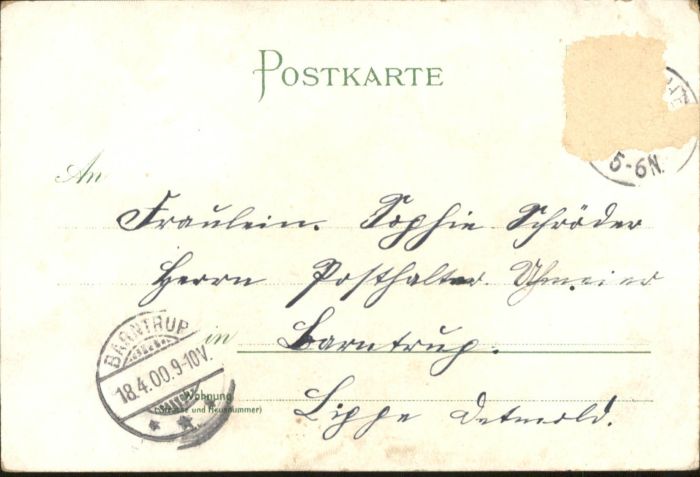 POSTKARTE
5-6N.
An
Fräulein. Sophie Schröder
Herrn Posthalter Uhmeier
BARNTRUP
18.4.00.9-10V.
in Barntrup.
Wohnung
(Strasse und Hausnummer)
Lippe Detmold.